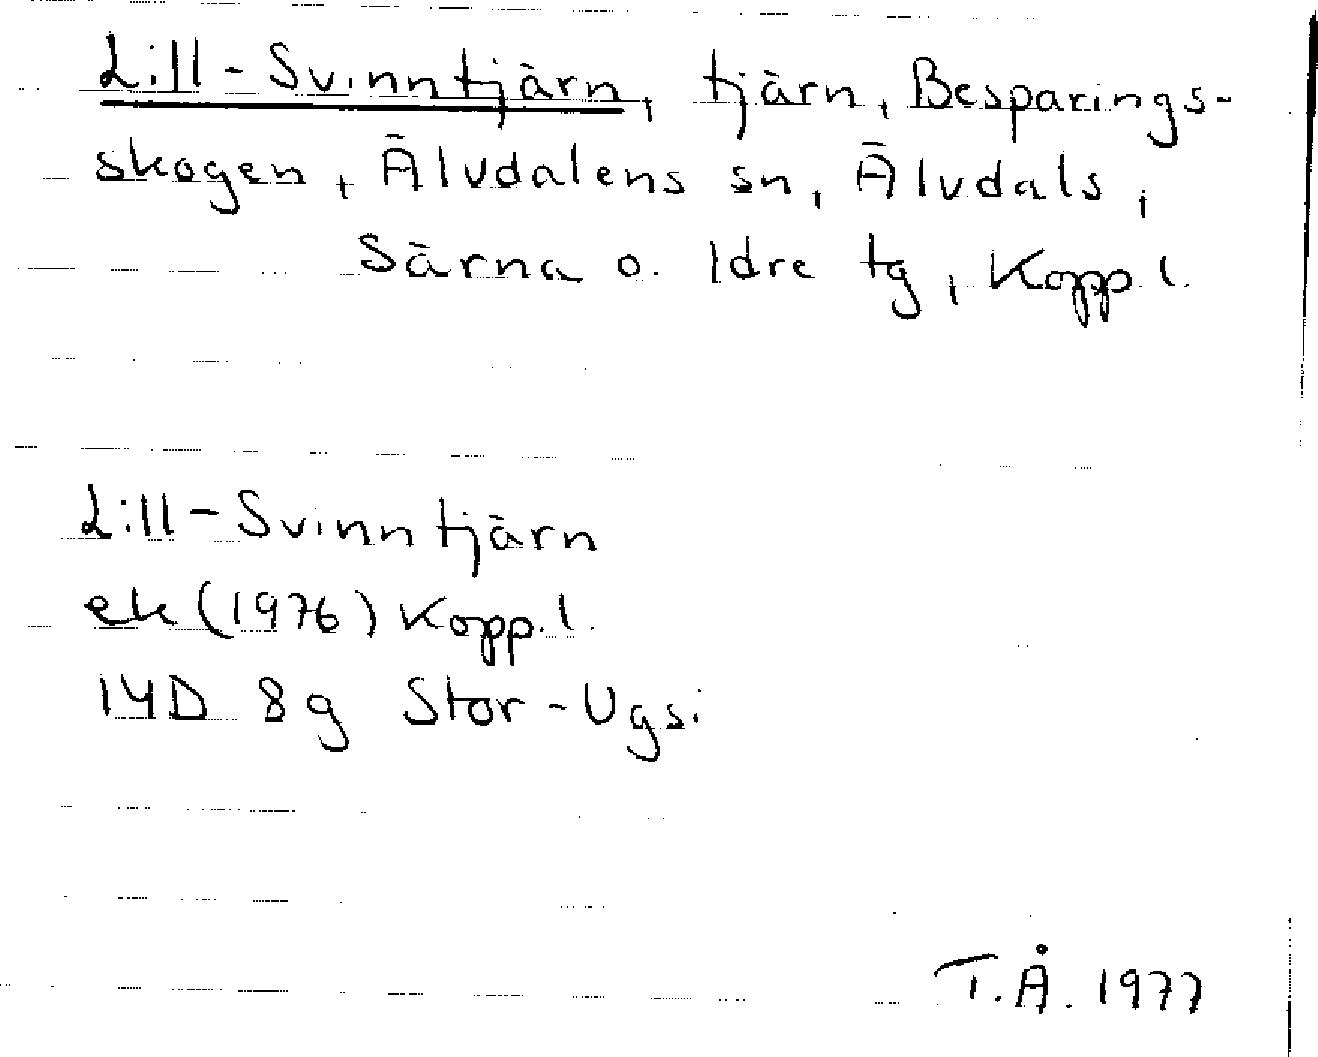 Lill-Svinntjärn, tjärn, Besparings-
skogen, Älvdalens sn, Älvdals,
Särna o. Idre tg, Kopp.l.
Lill-Svinntjärn
ek (1976) Kopp.l.
14D 8g Stor-Ugsi
T.Å. 1977